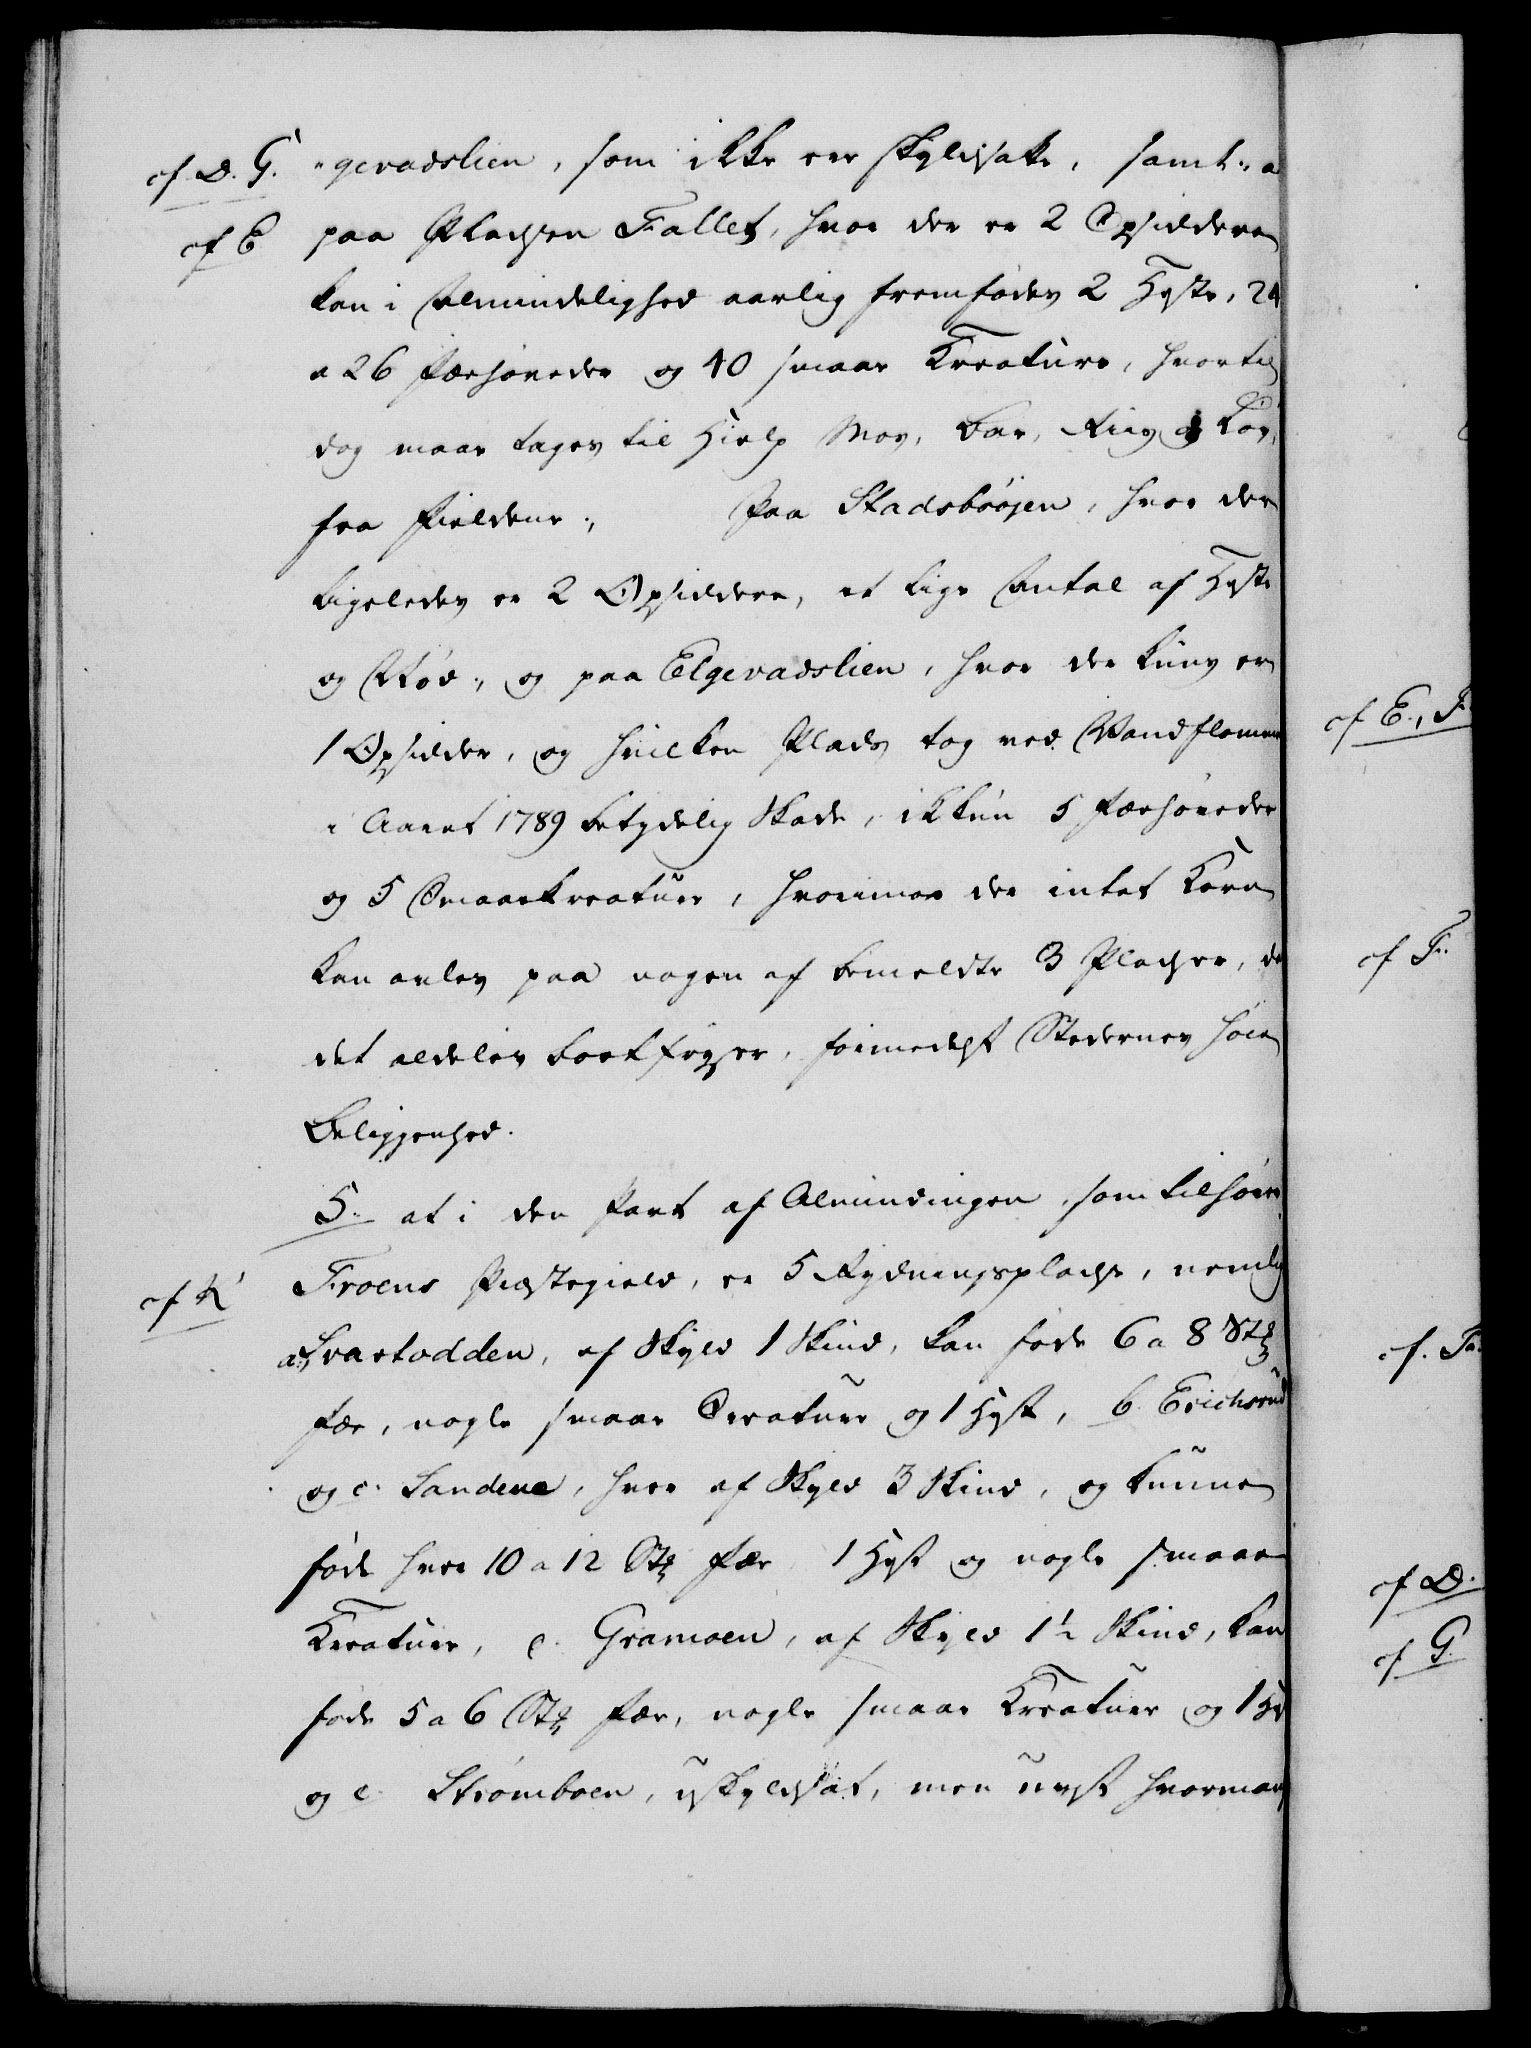 cf. D. G. „gevadslien, som ikke ere skyldsatte, samt, a
cf E paa Pladsen Fallet, hvor der er 2 Opsiddere
kan i Almindelighed aarlig fremfødes 2 Heste, 24
a 26 Fæehøveder og 40 smaae Kreature, hvortil
dog maae tages til Hielp Mos, Bar, Riis og Løv,
fra Fieldene., Paa Stadsbøöjen, hvor der
ligeledes er 2 Opsiddere, et lige Antal af Heste
og Qvæg., og paa Elgevadslien, hvor der kuns er
1 Opsidder, og hvilken Plads tog ved Vandflommen
i Aaret 1789 betydelig Skade, ikkun 5 Fæehøveder
og 5 Smaaekreature, hvorimod der intet Korn
kan avles paa nogen af bemeldte 3 Pladser, da
det aldeles bortfryser, formedelst Stedernes høie
Beliggenhed.
5. at i den Part af Almindingen, som tilhører
cf K Froens Præstegield, er 5 Rydningspladse, nemlig
a. Svartodden, af Skyld 1 Skind, kan føde 6 a 8 Stk
Fæe, nogle smaae Creature og 1 Hest, b. Erichsrud
og c. Sandene, hver af Skyld 3 Skind, og kunne
føde hver 10 a 12 Stk Fæe 1 Hest og nogle smaae
Kreature, d. Gramoen, af Skyld 1½ Skind, kan
føde 5 a 6 Stk Fæe, nogle smaae Kreature og 1 He
og e. Strømboen, uskyldsat, men uvist hvormange
cf E., F.
cf F.
cf. F.
cf D.
cf G.